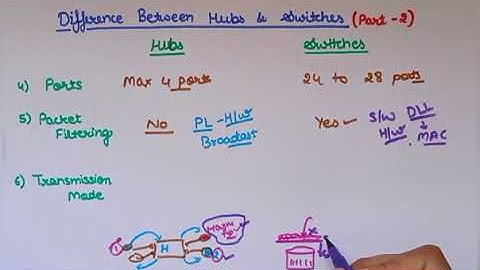 Difference Between Hubs & Switches (Part-2)
Hubs Switches
4) Ports Max 4 ports 24 to 28 ports
5) Packet Filtering No PL - H/W Broadcast Yes S/W DLL H/W. MAC
6) Transmission Mode
1 H 2